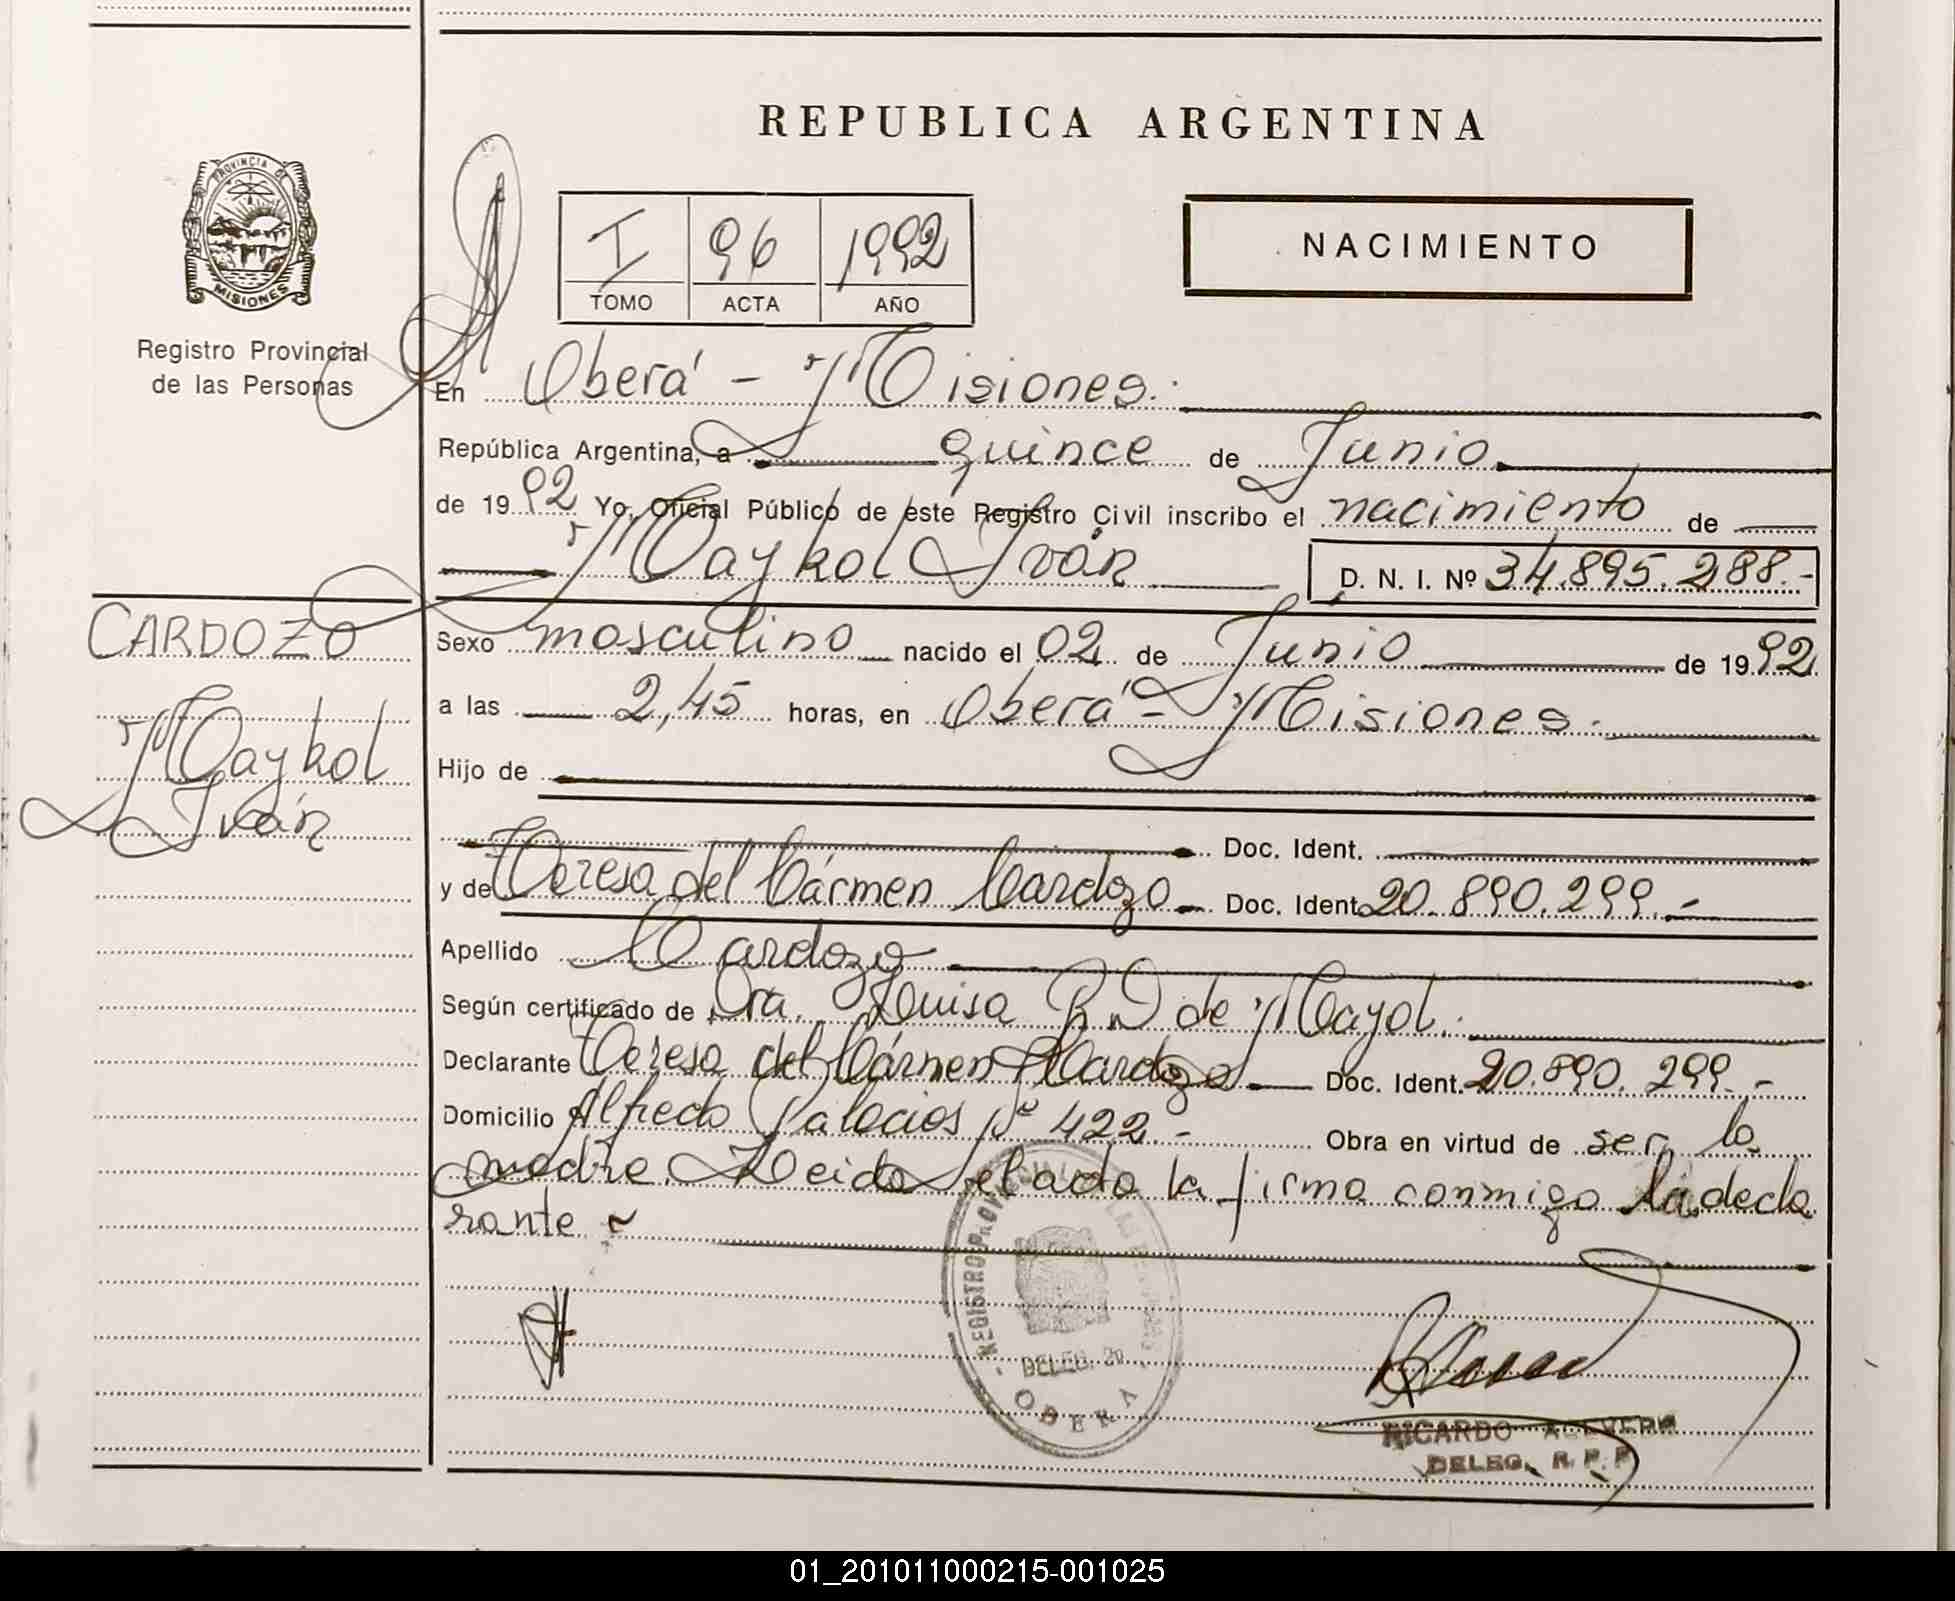 REPUBLICA ARGENTINA
PROVINCIA DE
MISIONES
Registro Provincial
de las Personas
I 96 1992
TOMO ACTA AÑO
NACIMIENTO
En Oberá - Misiones.
República Argentina, a quince de Junio
de 1992 Yo, Oficial Público de este Registro Civil inscribo el nacimiento de
Maykol Iván D. N. I. Nº 34.895.288.-
CARDOZO
Maykol
Iván
Sexo masculino nacido el 02 de Junio de 1992
a las 2,45 horas, en Oberá - Misiones.
Hijo de
Doc. Ident.
y de Teresa del Cármen Cardozo Doc. Ident. 20.890.299.-
Apellido Cardozo
Según certificado de Dra. Luisa R. D de Mayol.
Declarante Teresa del Cármen Cardozo Doc. Ident. 20.890.299.-
Domicilio Alfredo Palacios Nº 422.- Obra en virtud de ser la
madre. Leida el acta la firma conmigo la decla
rante
REGISTRO PROVINCIAL DE LAS PERSONAS
DELEG. 20
OBERA
RICARDO
DELEG. R. P. P
01_201011000215-001025